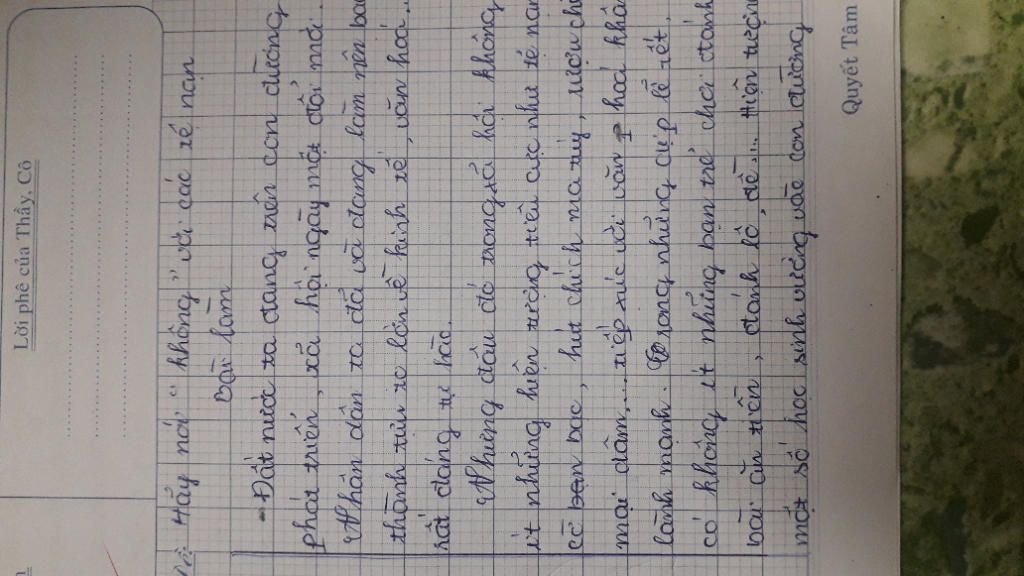 Lời phê của Thầy, Cô
Hãy nói "không" với các tệ nạn
Bài làm
- Đất nước ta đang trên con đường
phát triển, xã hội ngày một đổi mới.
Nhân dân ta đã và đang làm nên bao
thành tựu to lớn về kinh tế, văn hoá...
rất đáng tự hào.
Nhưng đâu đó trong xã hội không
ít những hiện tượng tiêu cực như tệ nạn
cờ bạc, hút chích ma túy, rượu chè
mại dâm,... tiếp xúc với văn hoá không
lành mạnh. Trong những dịp lễ tết,
có không ít những bạn trẻ chơi đánh
bài ăn tiền, đánh lô, đề..... Hiện tượng
một số học sinh vướng vào con đường
Quyết Tâm